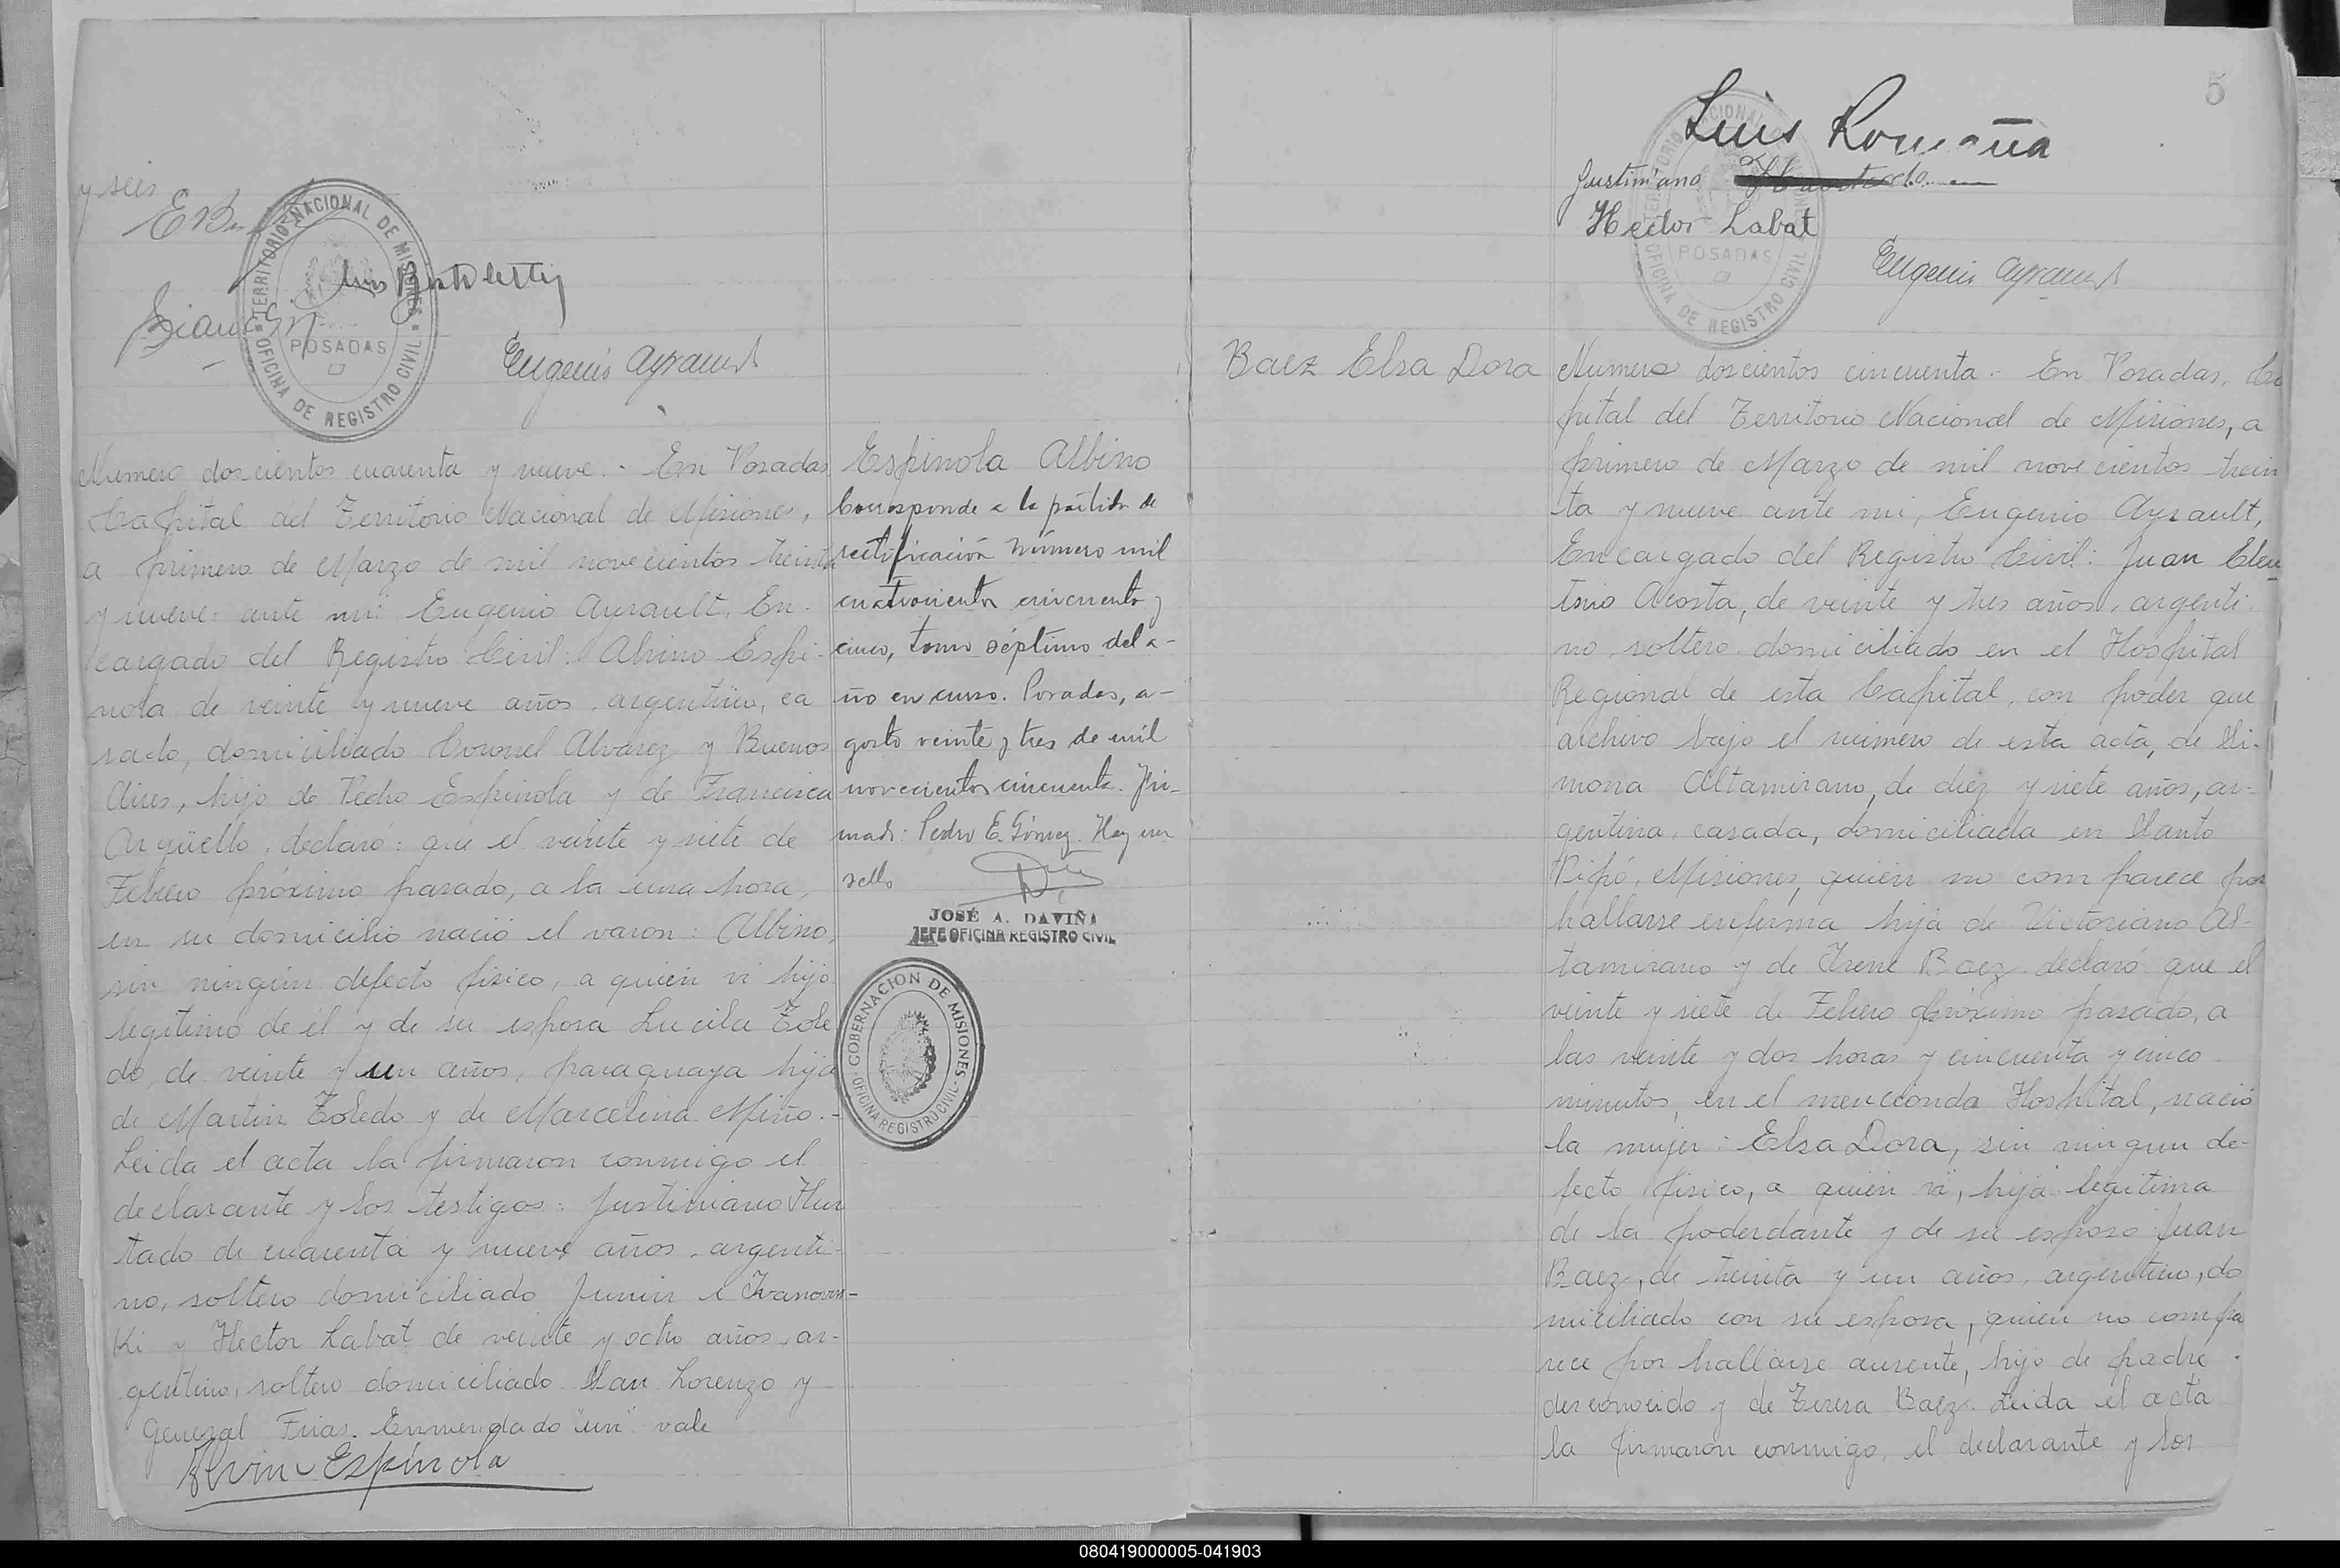 y seis
TERRITORIO NACIONAL DE MISIONES
POSADAS
OFICINA DE REGISTRO CIVIL
Eugenio Ayrault
Numero doscientos cuarenta y nueve.- En Posadas
Capital del Territorio Nacional de Misiones,
a primero de Marzo de mil novecientos treinta
y nueve: ante mi: Eugenio Ayrault, En-
cargado del Registro Civil: Alvino Espi-
nola de veinte y nueve años, argentino, ca
sado, domiciliado Coronel Alvarez y Buenos
Aires, hijo de Pedro Espinola y de Francisca
Argüello, declaró: que el veinte y siete de
Febrero próximo pasado, a la una hora,
en su domicilio nació el varon: Albino,
sin ningún defecto fisico, a quien vi hijo
legitimo de él y de su esposa Lucila Tole
do, de veinte y un años, paraguaya hija
de Martin Toledo y de Marcelina Miño.-
Leida el acta la firmaron conmigo el
declarante y los testigos: Justiniano Hur
tado de cuarenta y nueve años, argenti-
no, soltero domiciliado Junin e Ivanows-
ki y Hector Labat de veinte y ocho años, ar-
gentino, soltero domiciliado San Lorenzo y
General Frias. Enmendado "un" vale
Alvino Espinola
Espinola Albino
Corresponde a la partida de
rectificación número mil
cuatrocientos cincuenta y
cinco, tomo séptimo del a-
ño en curso. Posadas, a-
gosto veinte y tres de mil
novecientos cincuenta. Fir-
mado: Pedro E. Gómez. Hay un
sello
JOSÉ A. DAVIÑA
JEFE OFICINA REGISTRO CIVIL
GOBERNACION DE MISIONES
OFICINA REGISTRO CIVIL
5
Luis Romaña
Justiniano
Hector Labat
TERRITORIO NACIONAL DE MISIONES
POSADAS
OFICINA DE REGISTRO CIVIL
Eugenio Ayrault
Baez Elsa Dora
Numero doscientos cincuenta.- En Posadas, Ca
pital del Territorio Nacional de Misiones, a
primero de Marzo de mil novecientos trein
ta y nueve ante mi, Eugenio Ayrault,
Encargado del Registro Civil: Juan Eleu
terio Acosta, de veinte y tres años, argenti-
no, soltero, domiciliado en el Hospital
Regional de esta Capital, con poder que
archivo bajo el número de esta acta, de Si-
mona Altamirano, de diez y siete años, ar-
gentina, casada, domiciliada en Santo
Pipó, Misiones, quien no comparece por
hallarse enferma hija de Victoriano Al-
tamirano y de Irene Baez declaró que el
veinte y siete de Febrero próximo pasado, a
las veinte y dos horas y cincuenta y cinco
minutos, en el mencionda Hospital, nació
la mujer: Elsa Dora, sin ningun de-
fecto fisico, a quien vi, hija legitima
de la poderdante y de su esposo Juan
Baez, de treinta y un años, argentino, do
miciliado con su esposa, quien no compa
rece por hallarse ausente, hijo de padre
desconocido y de Teresa Baez. Leida el acta
la firmaron conmigo, el declarante y los